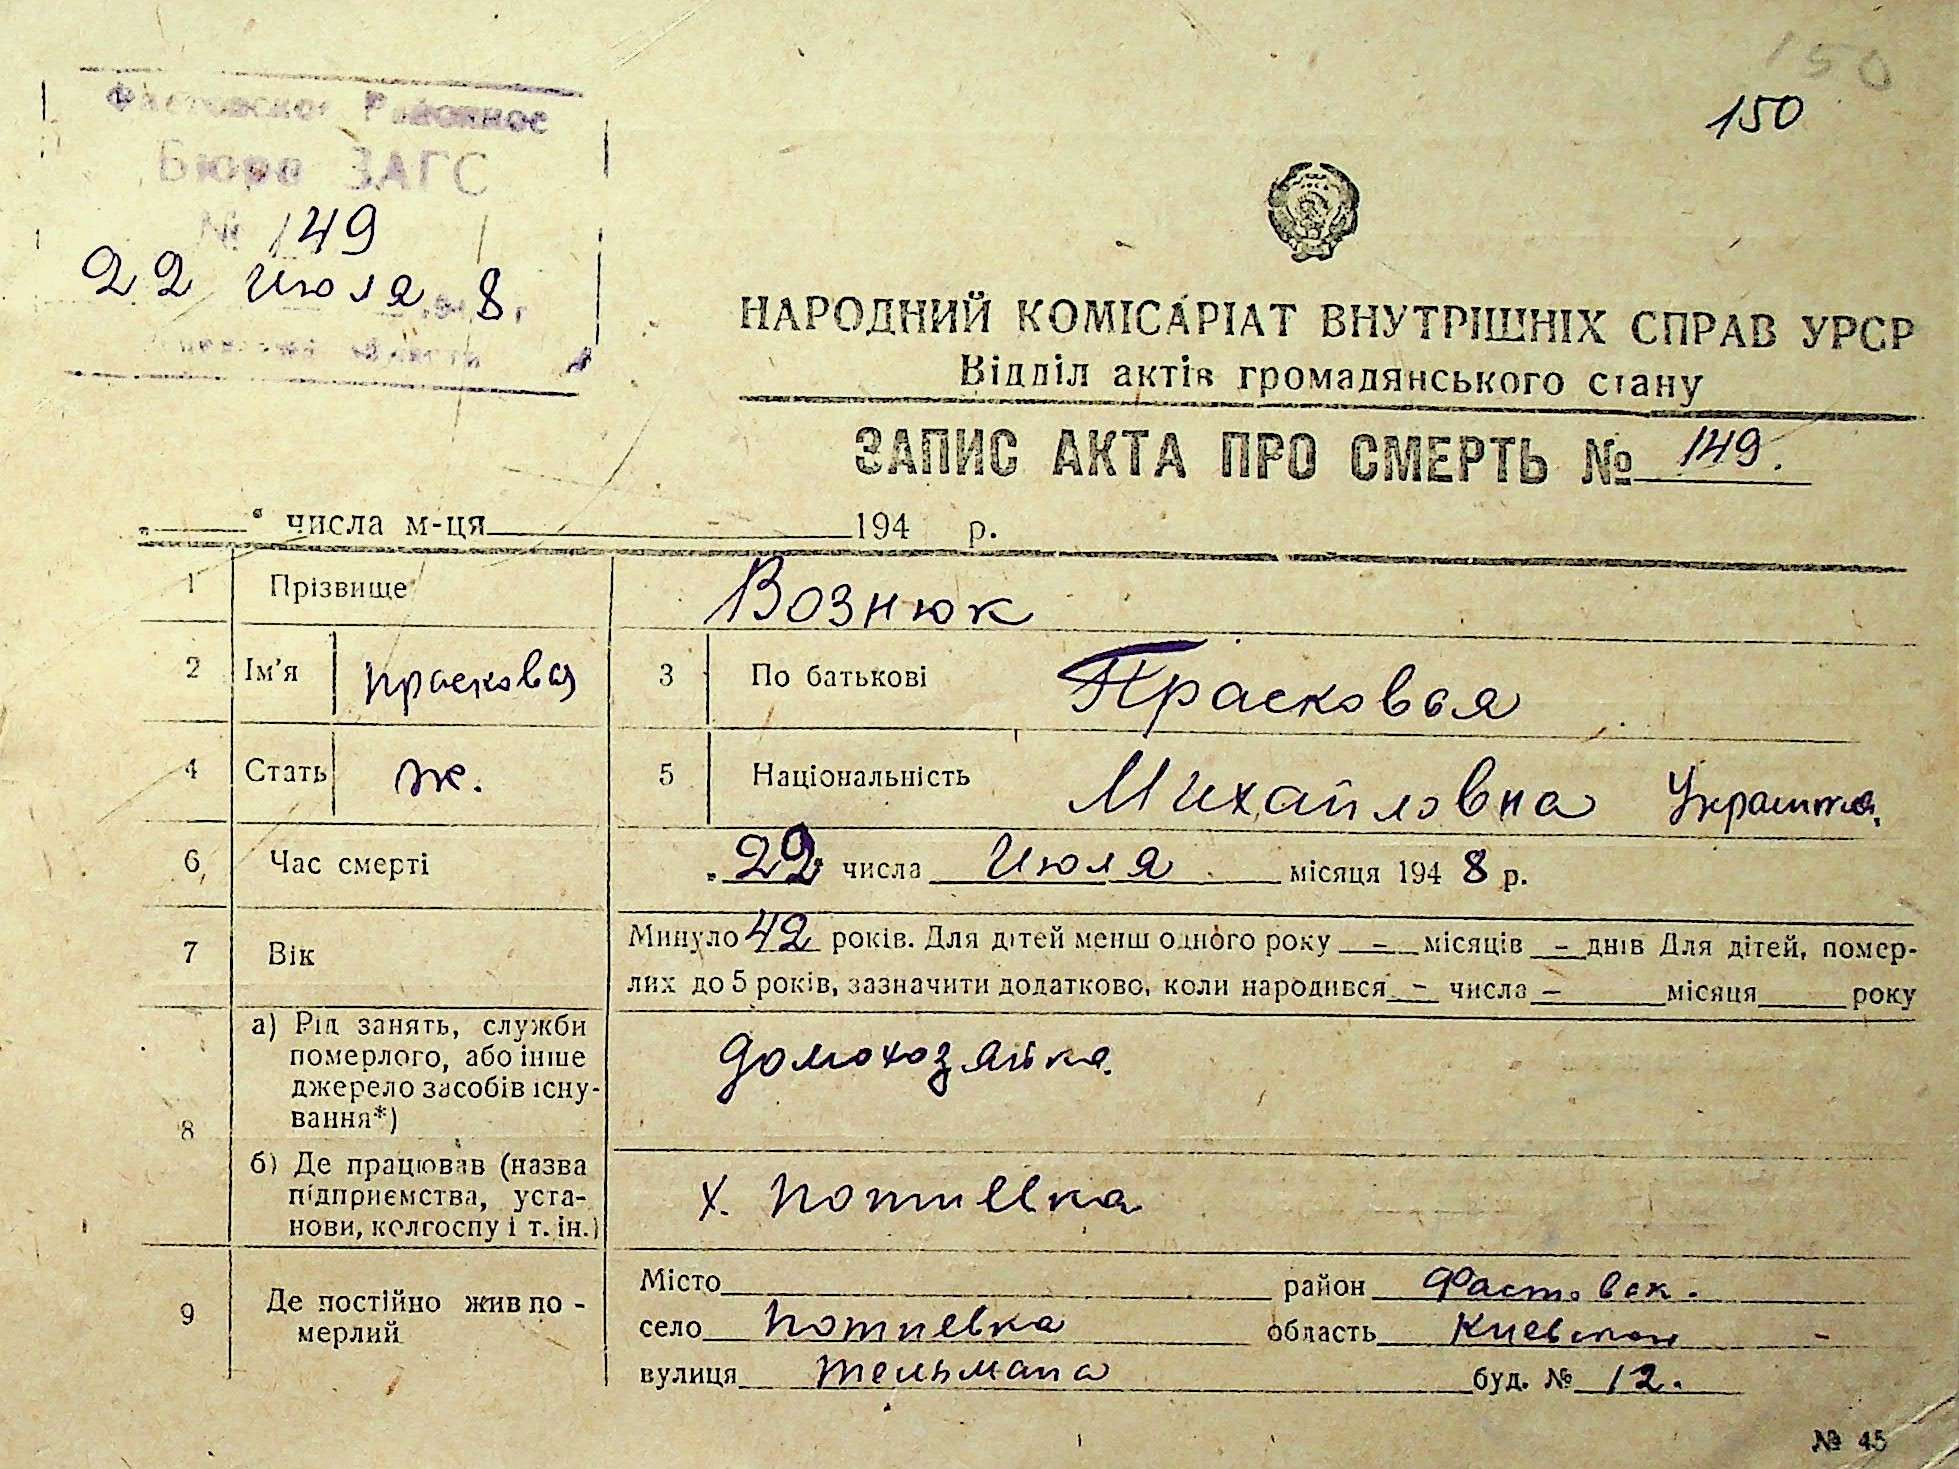 150
150
Фастовское Районное
Бюро ЗАГС
№ 149
22 Июля 8 г
НАРОДНИЙ КОМІСАРІАТ ВНУТРІШНІХ СПРАВ УРСР
Відділ актів громадянського стану
ЗАПИС АКТА ПРО СМЕРТЬ № 149.
„ “ числа м-ця 194 р.
1 Прізвище Вознюк
2 Ім'я Прасковья 3 По батькові Прасковья
4 Стать ж. 5 Національність Михайловна Украинка
6 Час смерті „22“ числа Июля місяця 1948 р.
7 Вік Минуло 42 років. Для дітей менш одного року - місяців - днів Для дітей, помер-
лих до 5 років, зазначити додатково, коли народився - числа - місяця року
8 а) Рід занять, служби
померлого, або інше
джерело засобів існу-
вання*)
домохозяйка
б) Де працював (назва
підприємства, уста-
нови, колгоспу і т. ін.)
х. Потиевка
9 Де постійно жив по-
мерлий
Місто район Фастовск.
село Потиевка область Киевской -
вулиця Тельмана буд. № 12.
№ 45